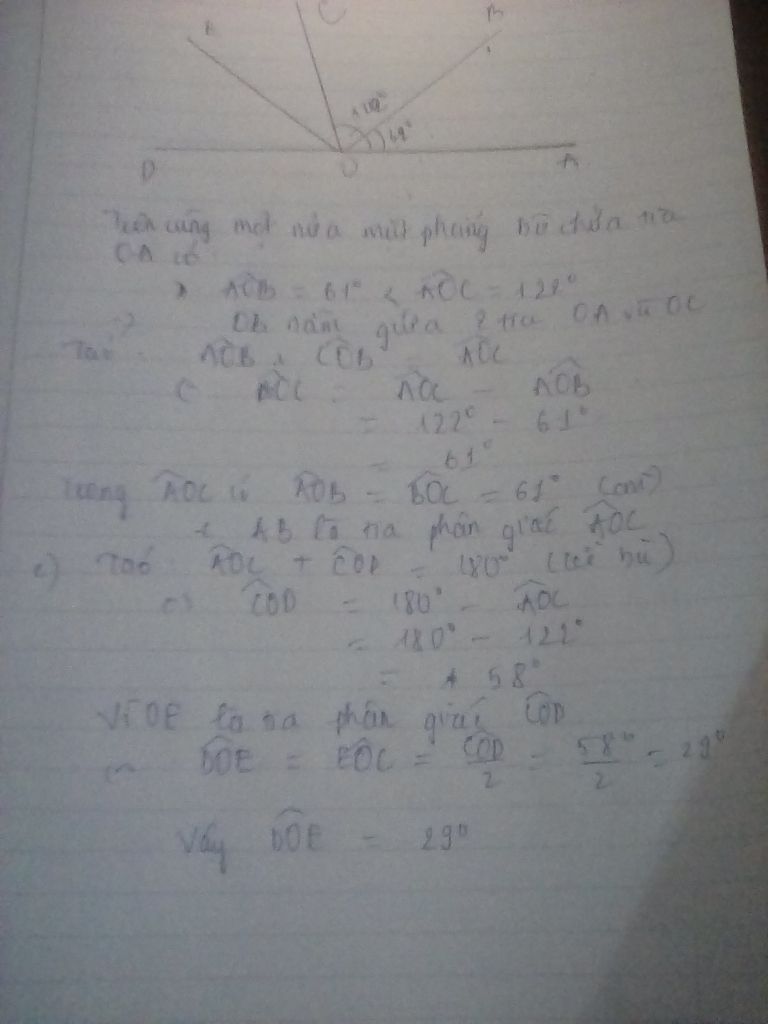 C
E
B
122°
61°
D
O
A
Trên cùng một nửa mặt phẳng bờ chứa tia
OA có
AOB = 61° < AOC = 122°
=> OB nằm giữa 2 tia OA và OC
Ta có: AOB + COB = AOC
AOC - AOB
= 122° - 61°
= 61°
Trong AOC có AOB = BOC = 61° (cmt)
AB là tia phân giác AOC
c) Ta có AOC + COD = 180° (kề bù)
=> COD = 180° - AOC
= 180° - 122°
= 58°
Vì OE là tia phân giác COD
=> DOE = EOC = COD/2 = 58°/2 = 29°
Vậy DOE = 29°